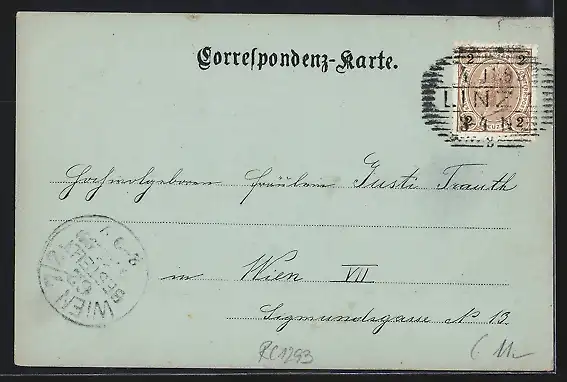 Correspondenz-Karte.
2 2
LINZ
2 2
Hochwolgeboren Fräulein Gusti Trauth
in Wien VII
Siegmundsgasse N 13.
WIEN 7/2
BESTELLT
RC1293